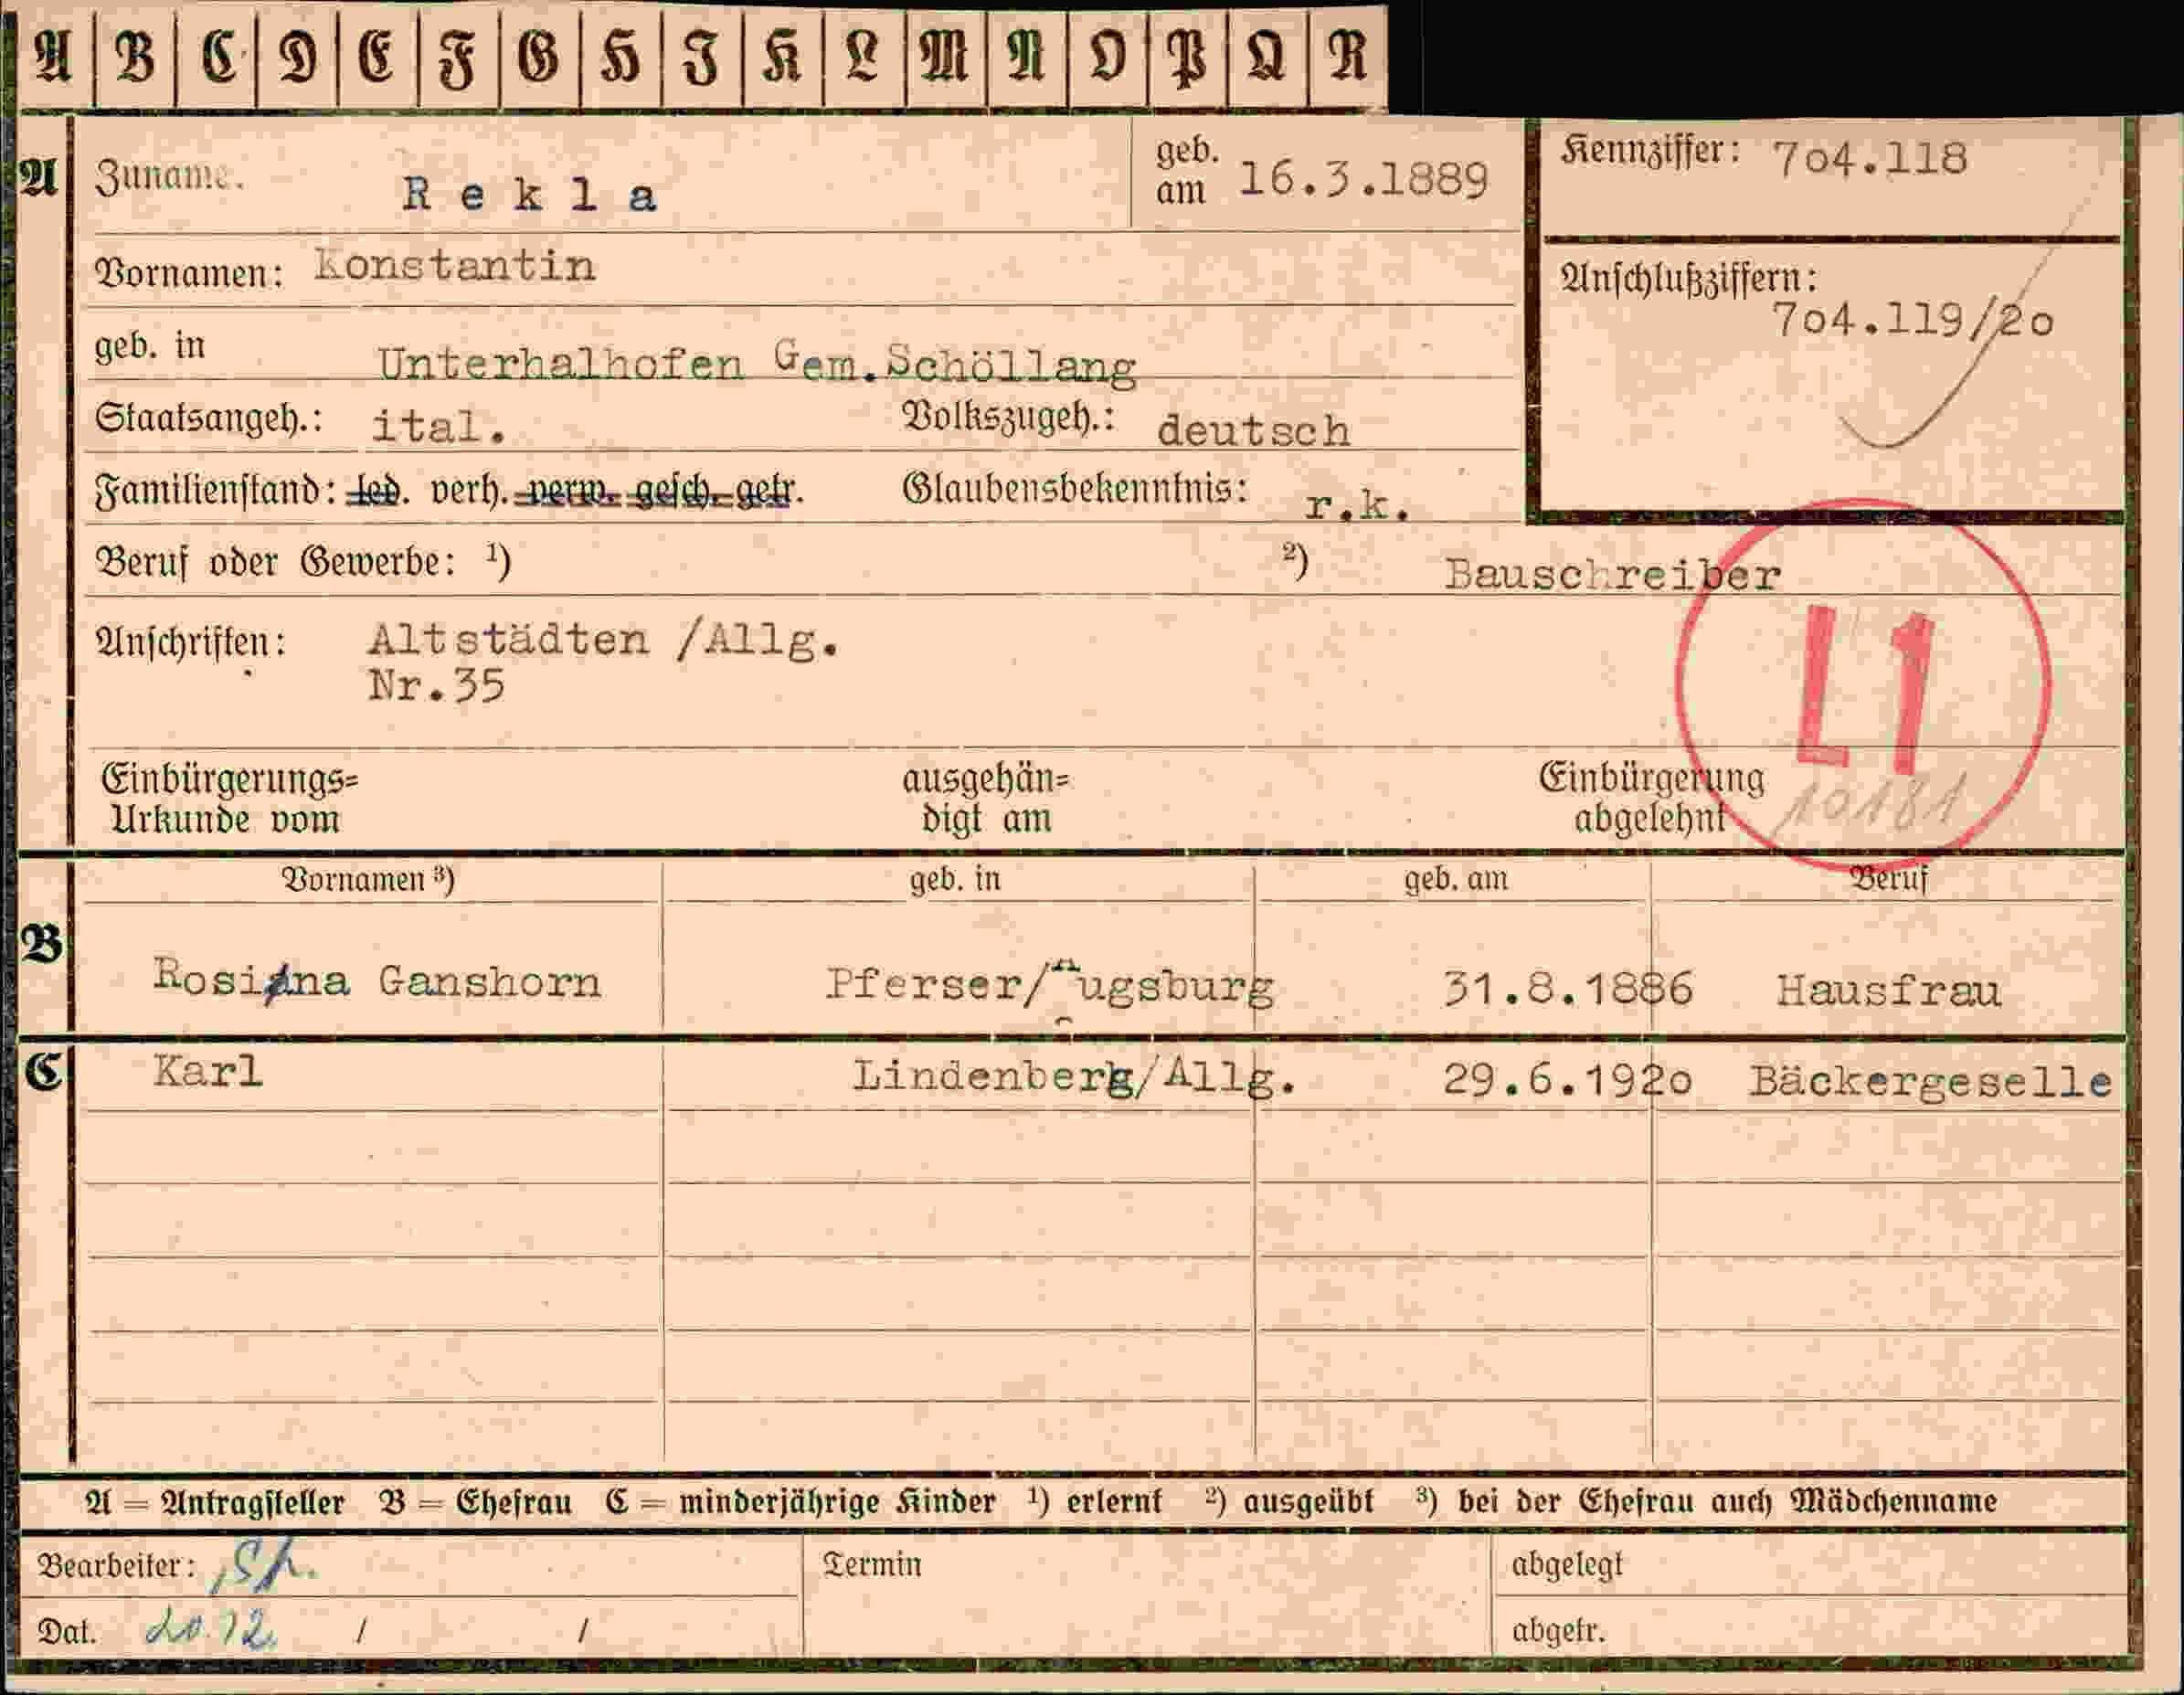 A B C D E F G H I K L M N O P Q R
A Zuname. Rekla geb. am 16.3.1889 Kennziffer: 704.118
Vornamen: Konstantin
Anschlußziffern:
704.119/20
geb. in Unterhalhofen Gem.Schöllang
Staatsangeh.: ital. Volkszugeh.: deutsch
Familienstand: led. verh. verw. gesch. getr. Glaubensbekenntnis: r.k.
Beruf oder Gewerbe: ¹) ²) Bauschreiber
Anschriften: Altstädten /Allg.
Nr.35
L1
Einbürgerungs= ausgehän= Einbürgerung
Urkunde vom digt am abgelehnt 10181
Vornamen ³) geb. in geb. am Beruf
B Rosina Ganshorn Pferser/Augsburg 31.8.1886 Hausfrau
C Karl Lindenberg/Allg. 29.6.1920 Bäckergeselle
A = Antragsteller B = Ehefrau C = minderjährige Kinder ¹) erlernt ²) ausgeübt ³) bei der Ehefrau auch Mädchenname
Bearbeiter: Termin abgelegt
Dat. 20.12. / / abgetr.